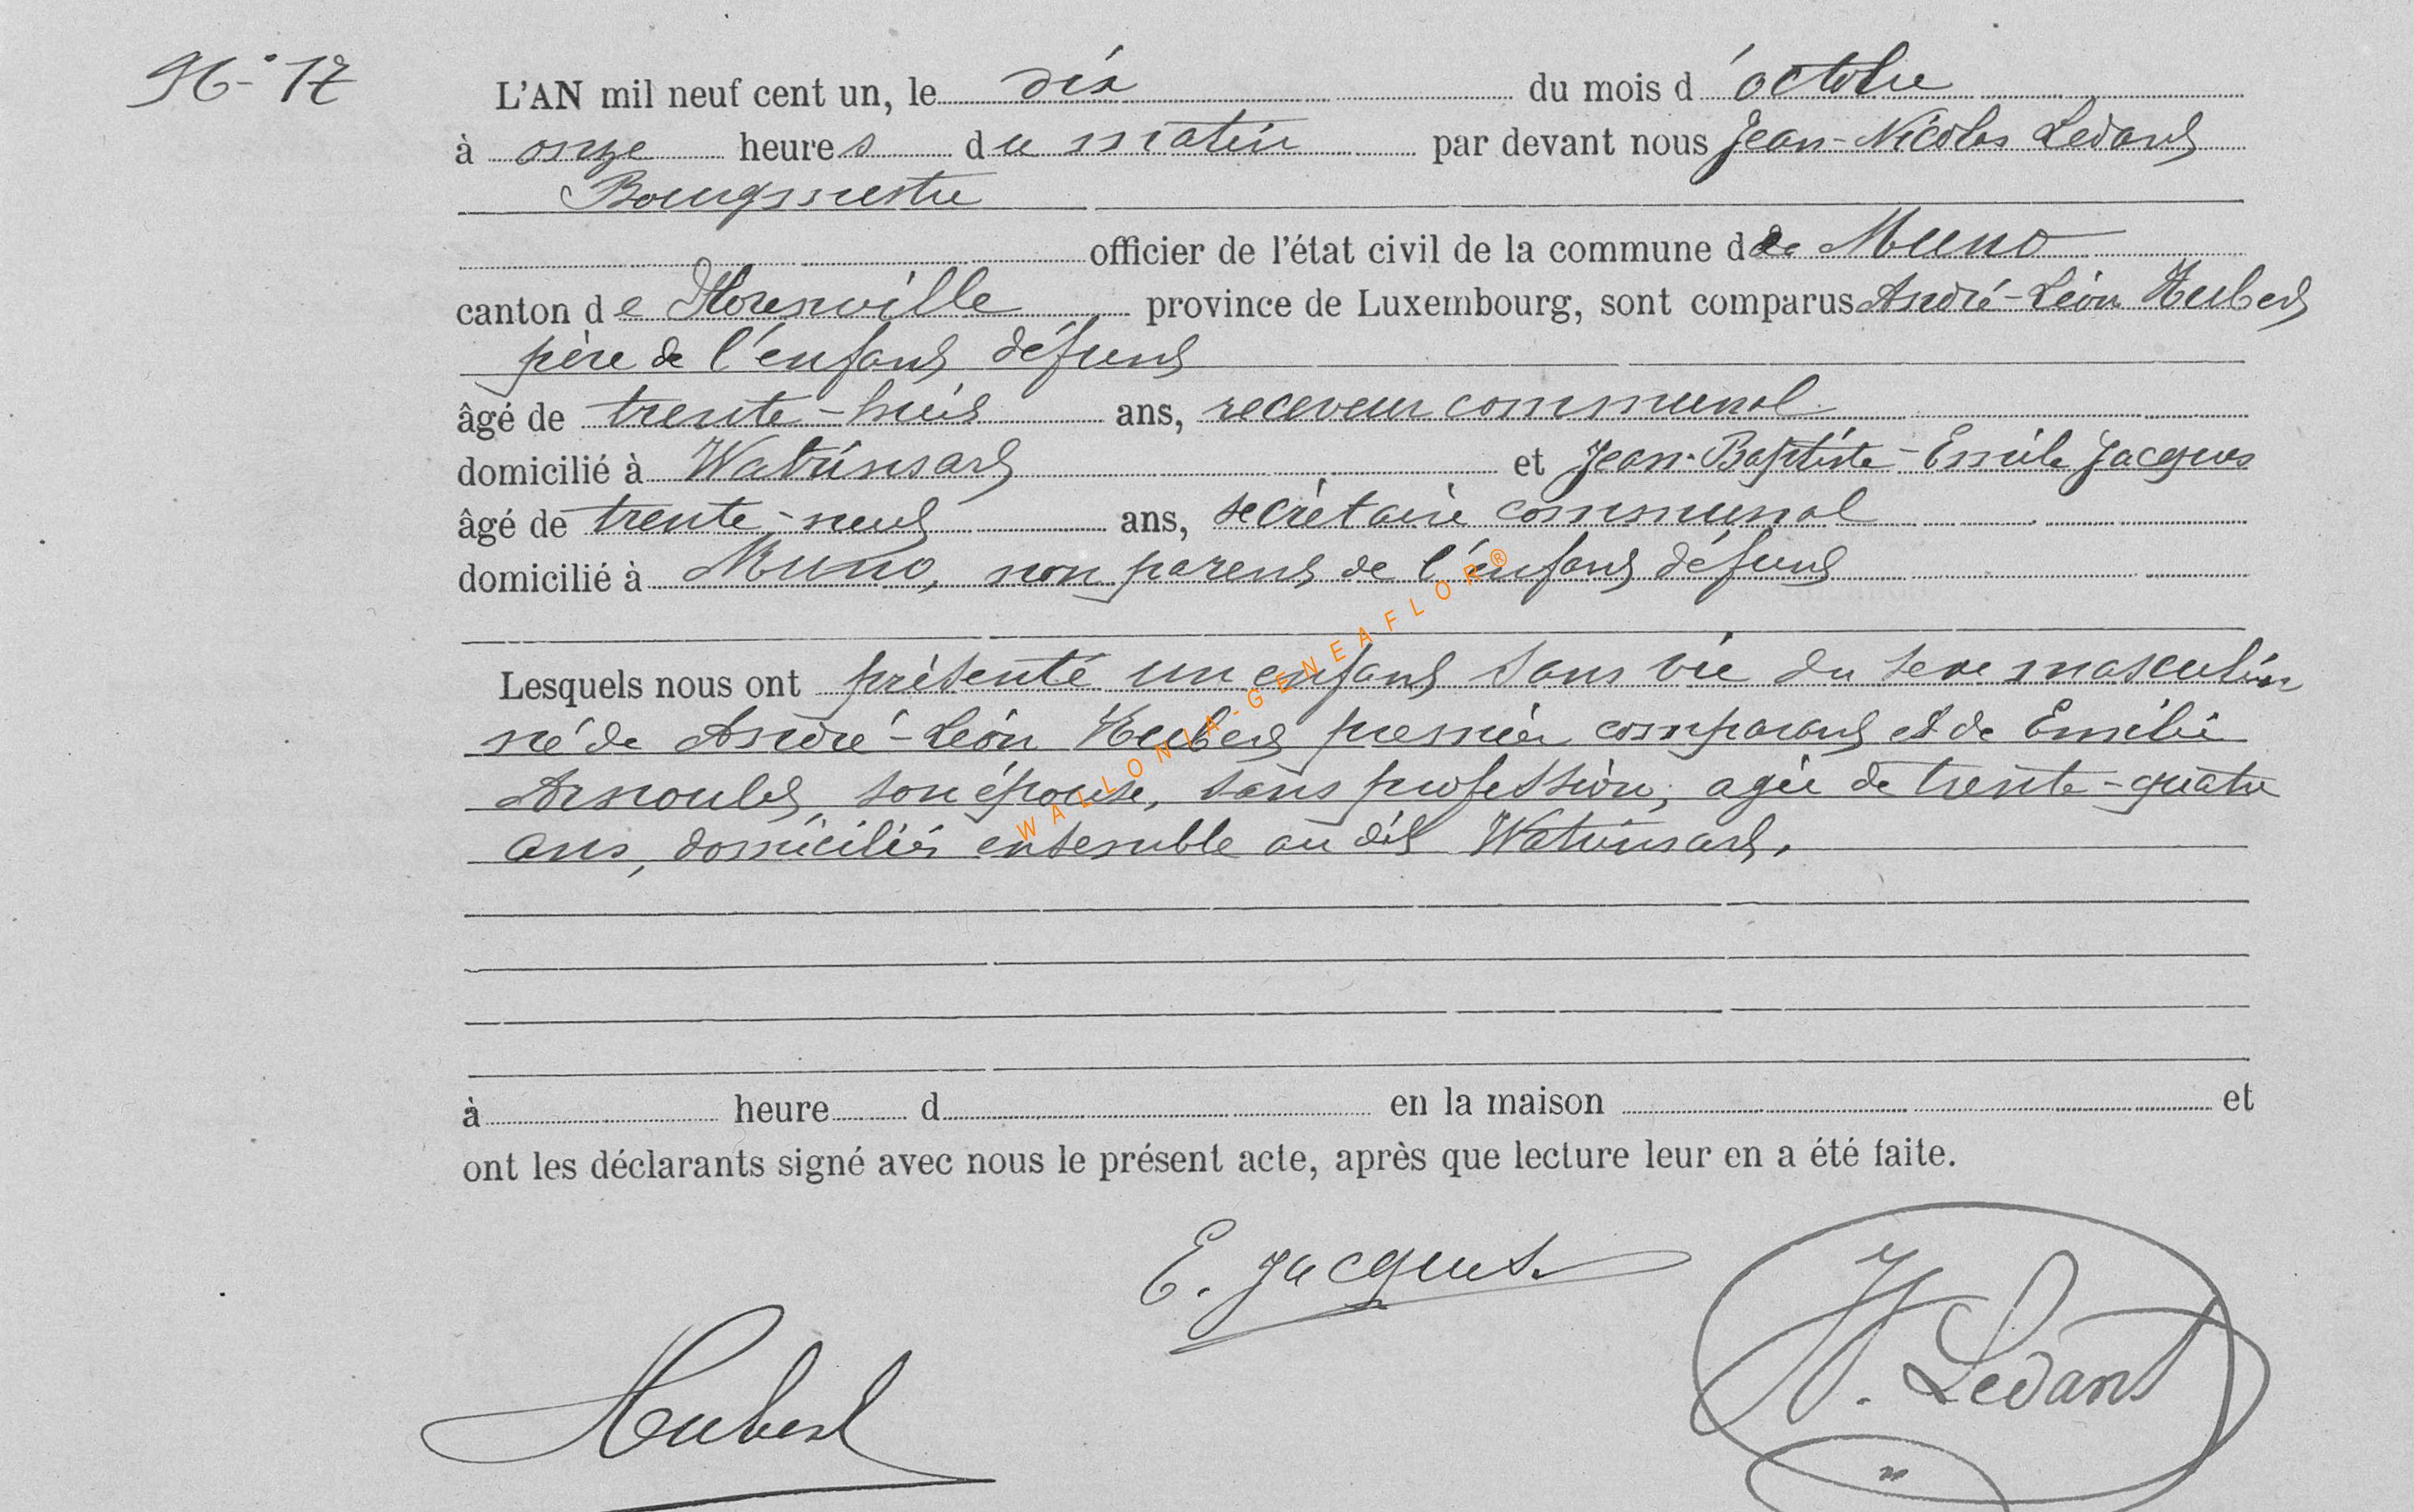 N° 17
L'AN mil neuf cent un, le dix du mois d'octobre
à onze heures du matin par devant nous Jean-Nicolas Ledant
Bourgmestre
officier de l'état civil de la commune d de Muno
canton de Florenville province de Luxembourg, sont comparus André-Léon Hubert
père de l'enfant défunt
âgé de trente-huit ans, receveur communal
domicilié à Watrinsart et Jean-Baptiste-Emile Jacques
âgé de trente-neuf ans, secrétaire communal
domicilié à Muno, non parent de l'enfant défunt
Lesquels nous ont présenté un enfant sans vie du sexe masculin
né de André-Léon Hubert premier comparant et de Emélie
Arnould, son épouse, sans profession, agée de trente-quatre
ans, domiciliés ensemble au dit Watrinsart.
à heure d en la maison et
ont les déclarants signé avec nous le présent acte, après que lecture leur en a été faite.
E. Jacques.
Hubert
N. Ledant
WALLONIA-GENEAFLOR®